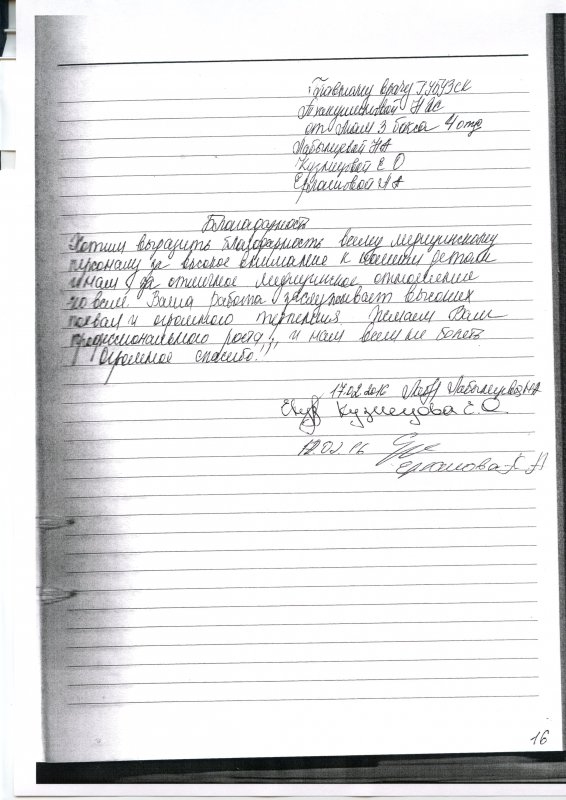 Главному врачу ГУБУЗСК
от мам 3 бокса 4 отд
Лабынцевой НА
Кузнецовой Е О
Благодарность
Хотим выразить благодарность всему медицинскому
персоналу за высокое внимание к нашим деткам
и нам, за отличное медицинское отношение
ко всем. Ваша работа заслуживает высоких
похвал и огромного терпения Желаем Вам
профессионального роста! и нам всем не болеть
Огромное спасибо!!!
17.02.2016
Кузнецова Е. О.
16